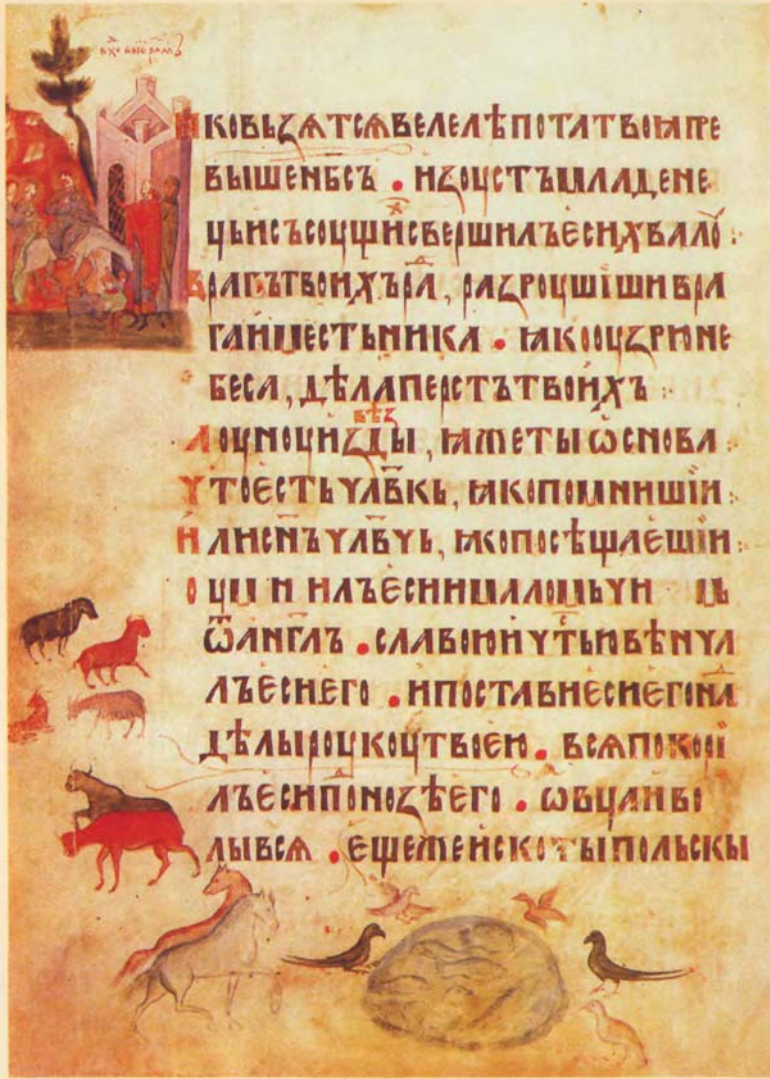 ꙗковьꙁѧтсѧвелелѣпотатвоꙗпре
вышенбсъ • иꙁоустъмладене
цьисъсоущисвершилъесихвало :
врагътвоихъра, раꙁроушішивра
гаиместьника • ꙗкооуꙁрюне
беса, дѣлаперстътвоихъ :
лоуноуиꙁвѣꙁды, ꙗжетыѡснова
чтоестьчлвкъ, ꙗкопомнишіи :
илиснъчлвчь, ꙗкопосѣщаешіи :
оум и илъесиималомьчи мь
ѿангглъ • славоюичтьювѣнча
лъесиего • ипоставиесиегона
дѣлыроукоутвоею • всяпокорі
лъесипоноꙁѣего • ѡвцаиво
лывсѧ • ещежеискотыпольскы